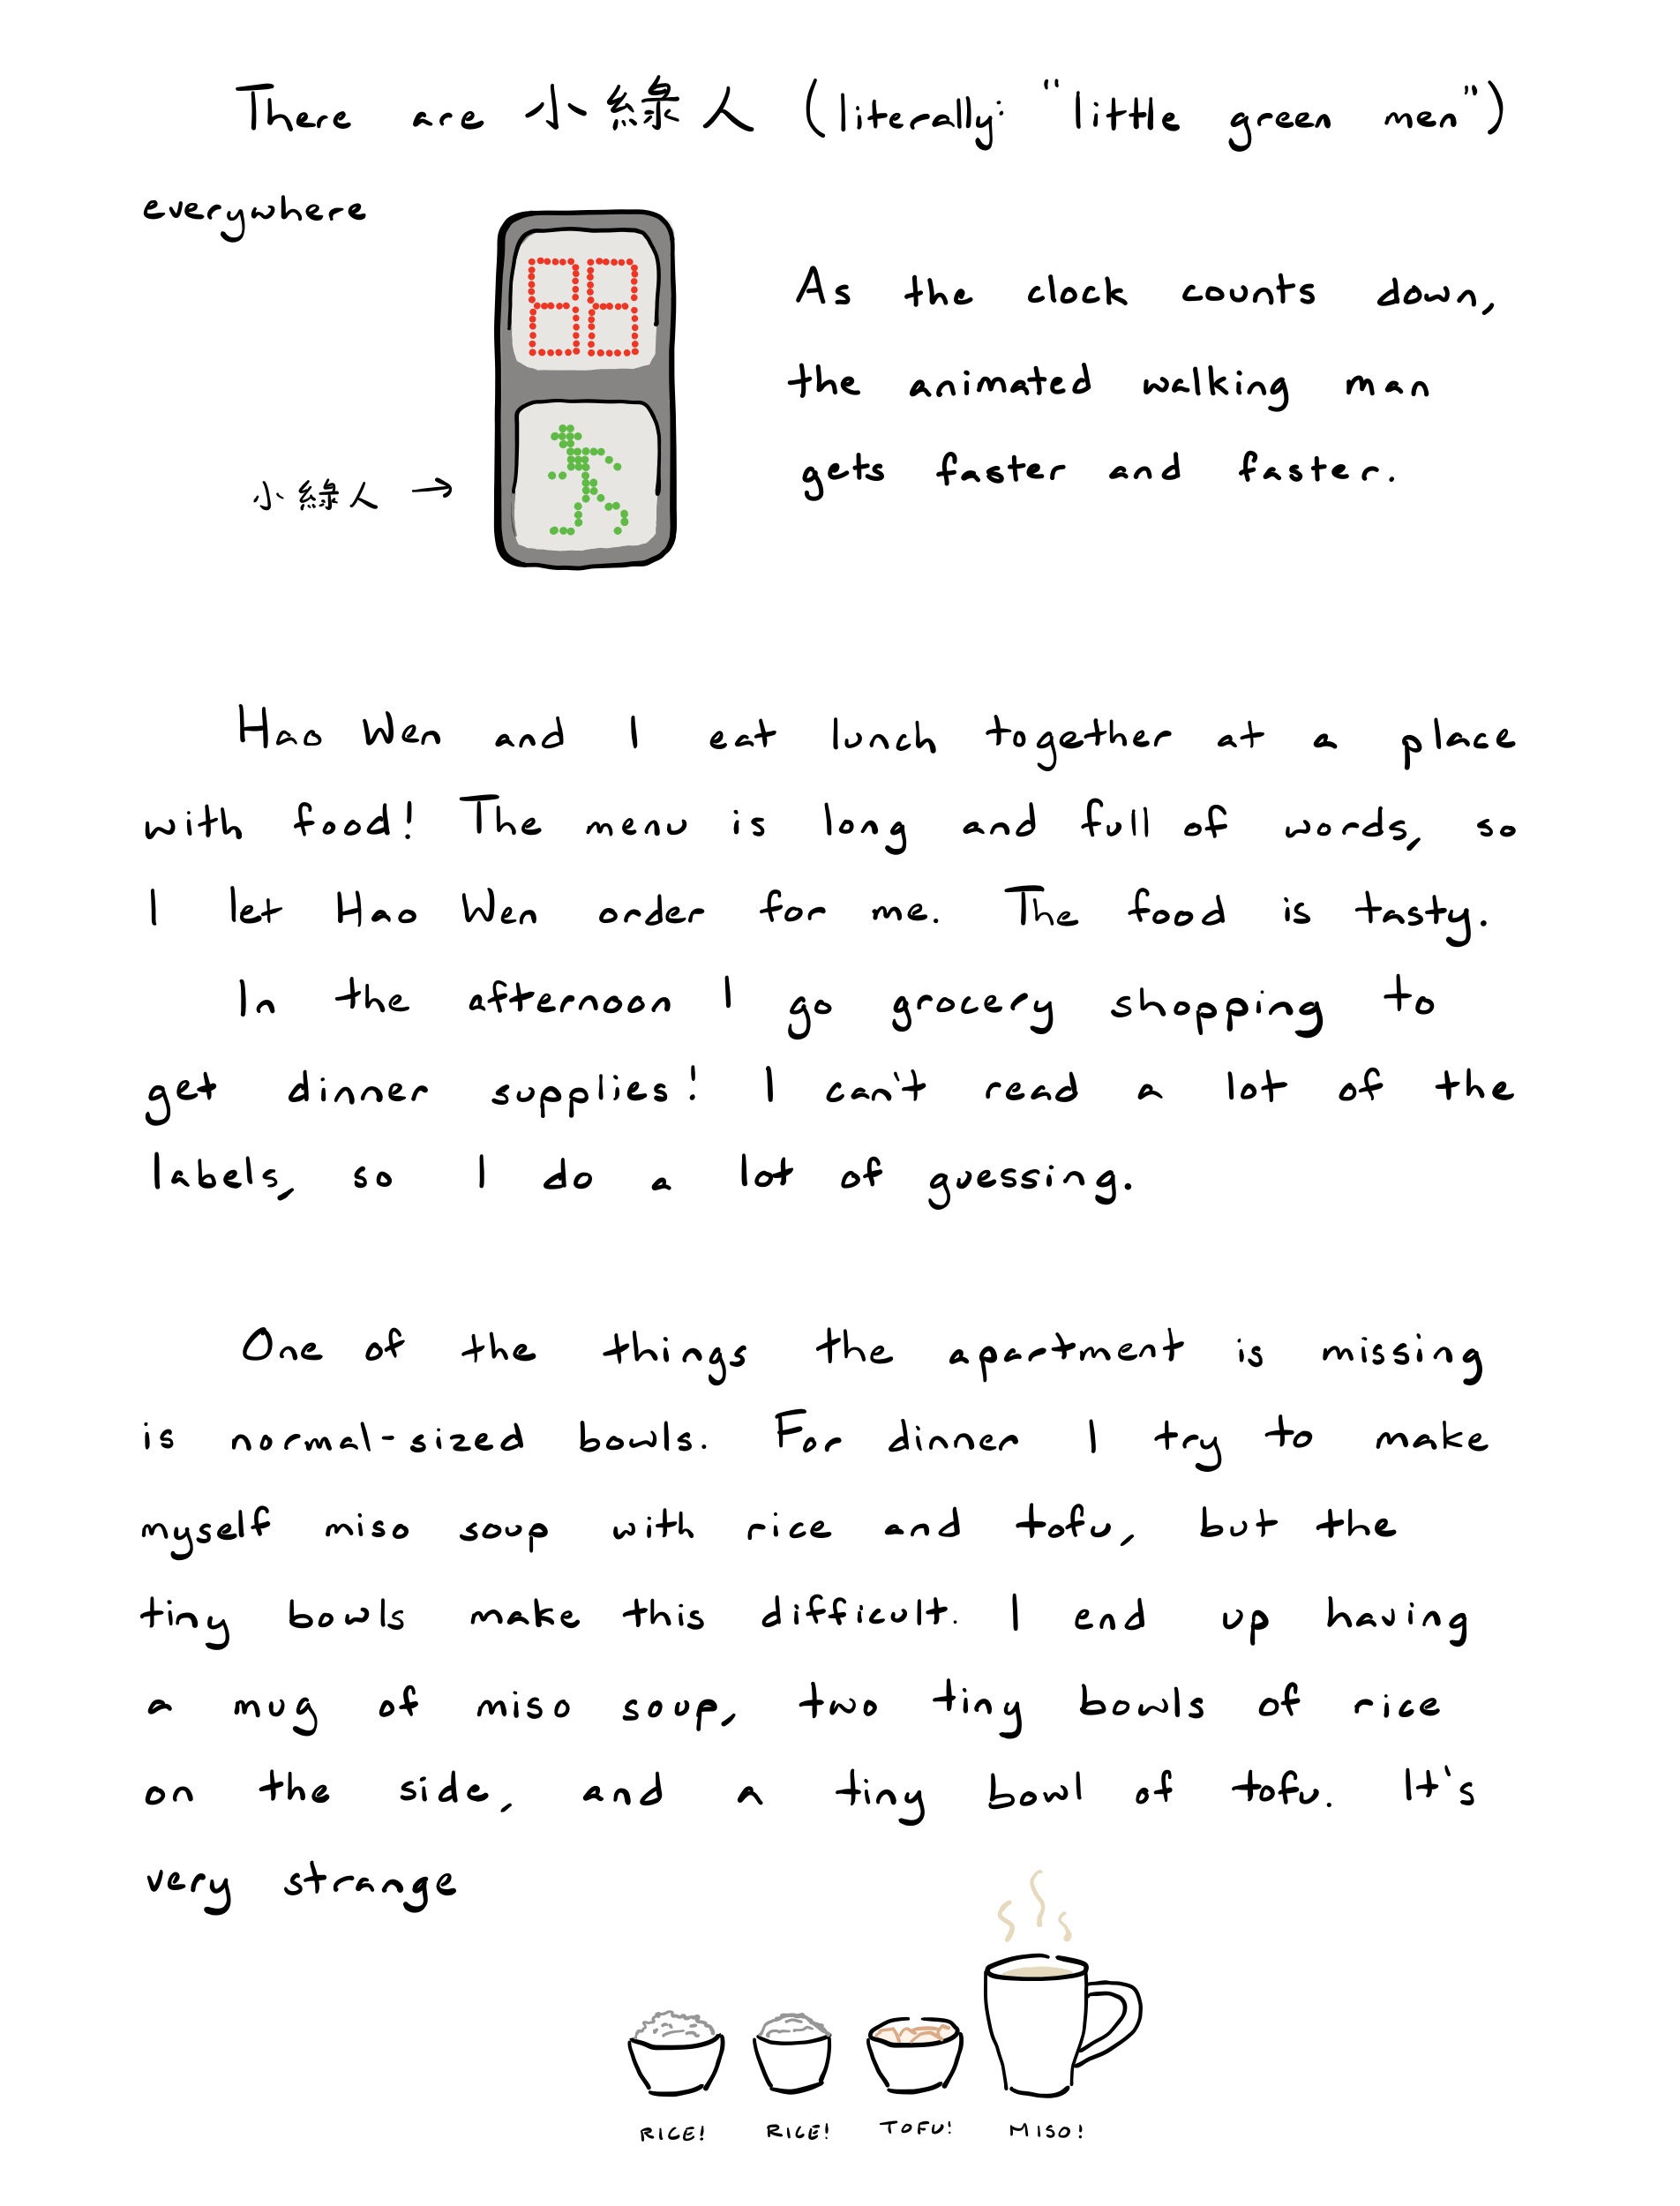 There are 小綠人 (literally: "little green men")
everywhere
88
As the clock counts down,
the animated walking man
gets faster and faster.
小綠人 →
Hao Wen and I eat lunch together at a place
with food! The menu is long and full of words, so
I let Hao Wen order for me. The food is tasty.
In the afternoon I go grocery shopping to
get dinner supplies! I can't read a lot of the
labels, so I do a lot of guessing.
One of the things the apartment is missing
is normal-sized bowls. For dinner I try to make
myself miso soup with rice and tofu, but the
tiny bowls make this difficult. I end up having
a mug of miso soup, two tiny bowls of rice
on the side, and a tiny bowl of tofu. It's
very strange
RICE! RICE! TOFU! MISO!